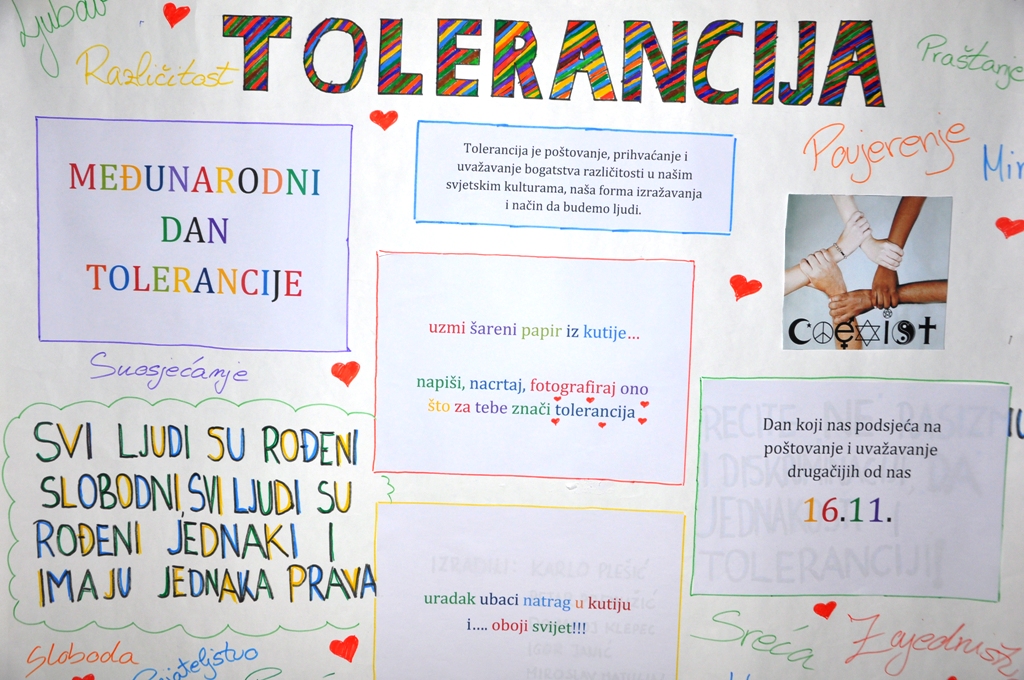 Ljubav
Različitost
TOLERANCIJA
Praštanje
MEĐUNARODNI
DAN
TOLERANCIJE
Tolerancija je poštovanje, prihvaćanje i
uvažavanje bogatstva različitosti u našim
svjetskim kulturama, naša forma izražavanja
i način da budemo ljudi.
Povjerenje
Mir
COEXIST
uzmi šareni papir iz kutije...
napiši, nacrtaj, fotografiraj ono
što za tebe znači tolerancija
Suosjećanje
SVI LJUDI SU ROĐENI
SLOBODNI, SVI LJUDI SU
ROĐENI JEDNAKI I
IMAJU JEDNAKA PRAVA
Dan koji nas podsjeća na
poštovanje i uvažavanje
drugačijih od nas
16.11.
RECITE NE RASIZMU
I DISKRIMINACIJI, DA
JEDNAKOSTI I
TOLERANCIJI!
IZRADILI: KARLO PLEŠIĆ
KLEPEC
IGOR
MIROSLAV
uradak ubaci natrag u kutiju
i.... oboji svijet!!!
Sloboda
Prijateljstvo
Sreća